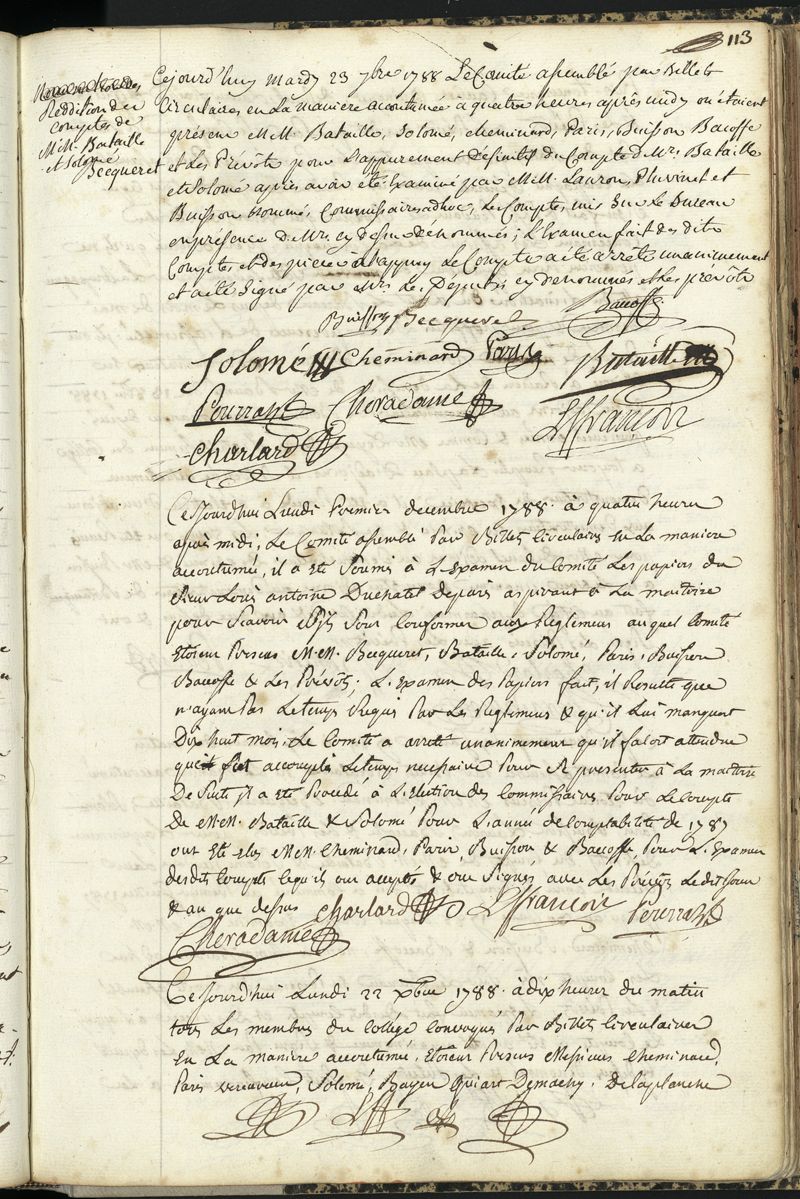 113
Reddition de
comptes de
MM. Bataille
et Solomé
Becqueret
Cejourd'huy mardy 23 9bre 1788 Le Comité assemblé par Billets
Circulaires en La maniere acoutumée à quatre heures après midy où étoient
présens MM. Bataille, Solomé, cheminard, Paris, Buisson Bacoffe
et Les Prévôts pour L'appurement Définitif du Compte de Mrs. Bataille
et Solomé après avoir été Examiné par MM. Lauron, Pluvinet et
Buisson nommés Commissaires adhoc, Le Compte mis Sur Le Bureau
en présence de Mrs. cy dessus dénommés; L'Examen fait des dits
Comptes et des pieces à L'appuy Le Compte a été arrêté unanimement
et a été Signé par Mrs. Les Députés cy dénommés et Les prévôts
Buisson Becqueret Bacoffe
Solomé Cheminard Paris Bataille
Pourrat Cheradame
Charlard Lfrançois
Cejourdhui Lundi Premier decembre 1788 à quatre heures
après midi, Le Comité assemblé Par Billets Circulaires En La maniere
accoutumée, il a été Soumis à L'Examen du Comité Les papiers du
Sieur Louis antoine Duchatel Depuis aspirant à La maitrise
pour Scavoir s'ils sont Conformes aux Reglemens auquel Comité
Etoient Presens M.M. Becqueret, Bataille, Solomé, Paris, Buisson
Bacoffe & Les Prévôts; L'Examen des Papiers fait, il Resulte que
n'ayant Pas Le temps Requis Par Les Reglemens & qu'il Lui manquoit
Dix huit mois, Le Comité a arreté unanimement qu'il faloit attendre
qu'il eut accompli Le temps necessaire Pour se presenter à La maitrise
De Suite il a été Procedé à L'Election des Commissaires Pour Le Compte
De M.M. Bataille & Solomé Pour L'année de Comptabilité de 1787
ont Eté elus M.M. Cheminard, Paris, Buisson & Bacoffe, Pour L'Examen
desdits Compte Lequ'ils ont accepté & ont Signés avec Les Prévôts Ledit Jour
& an que dessus Charlard Lfrançois Pourrat
Cheradame
Cejourd'hui Lundi 22 Xbre 1788 à dix heures du matin
tous Les membres du College convoqués Par Billets Circulaires
En La maniere accoutumée, Etoient Presens Messieurs Cheminard,
Paris, Solomé, Bayen Quiart Demachy, Delaplanche